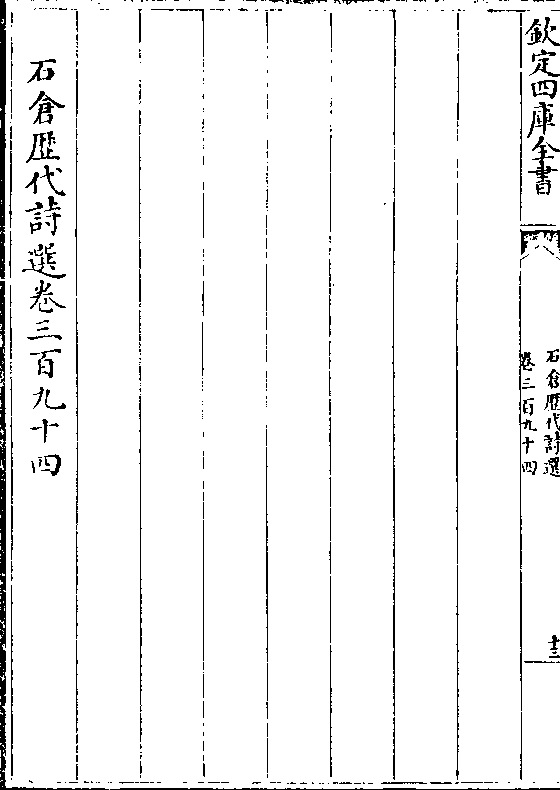 欽定四庫全書
石倉歷代詩選
卷三百九十四
十三
石倉歷代詩選卷三百九十四